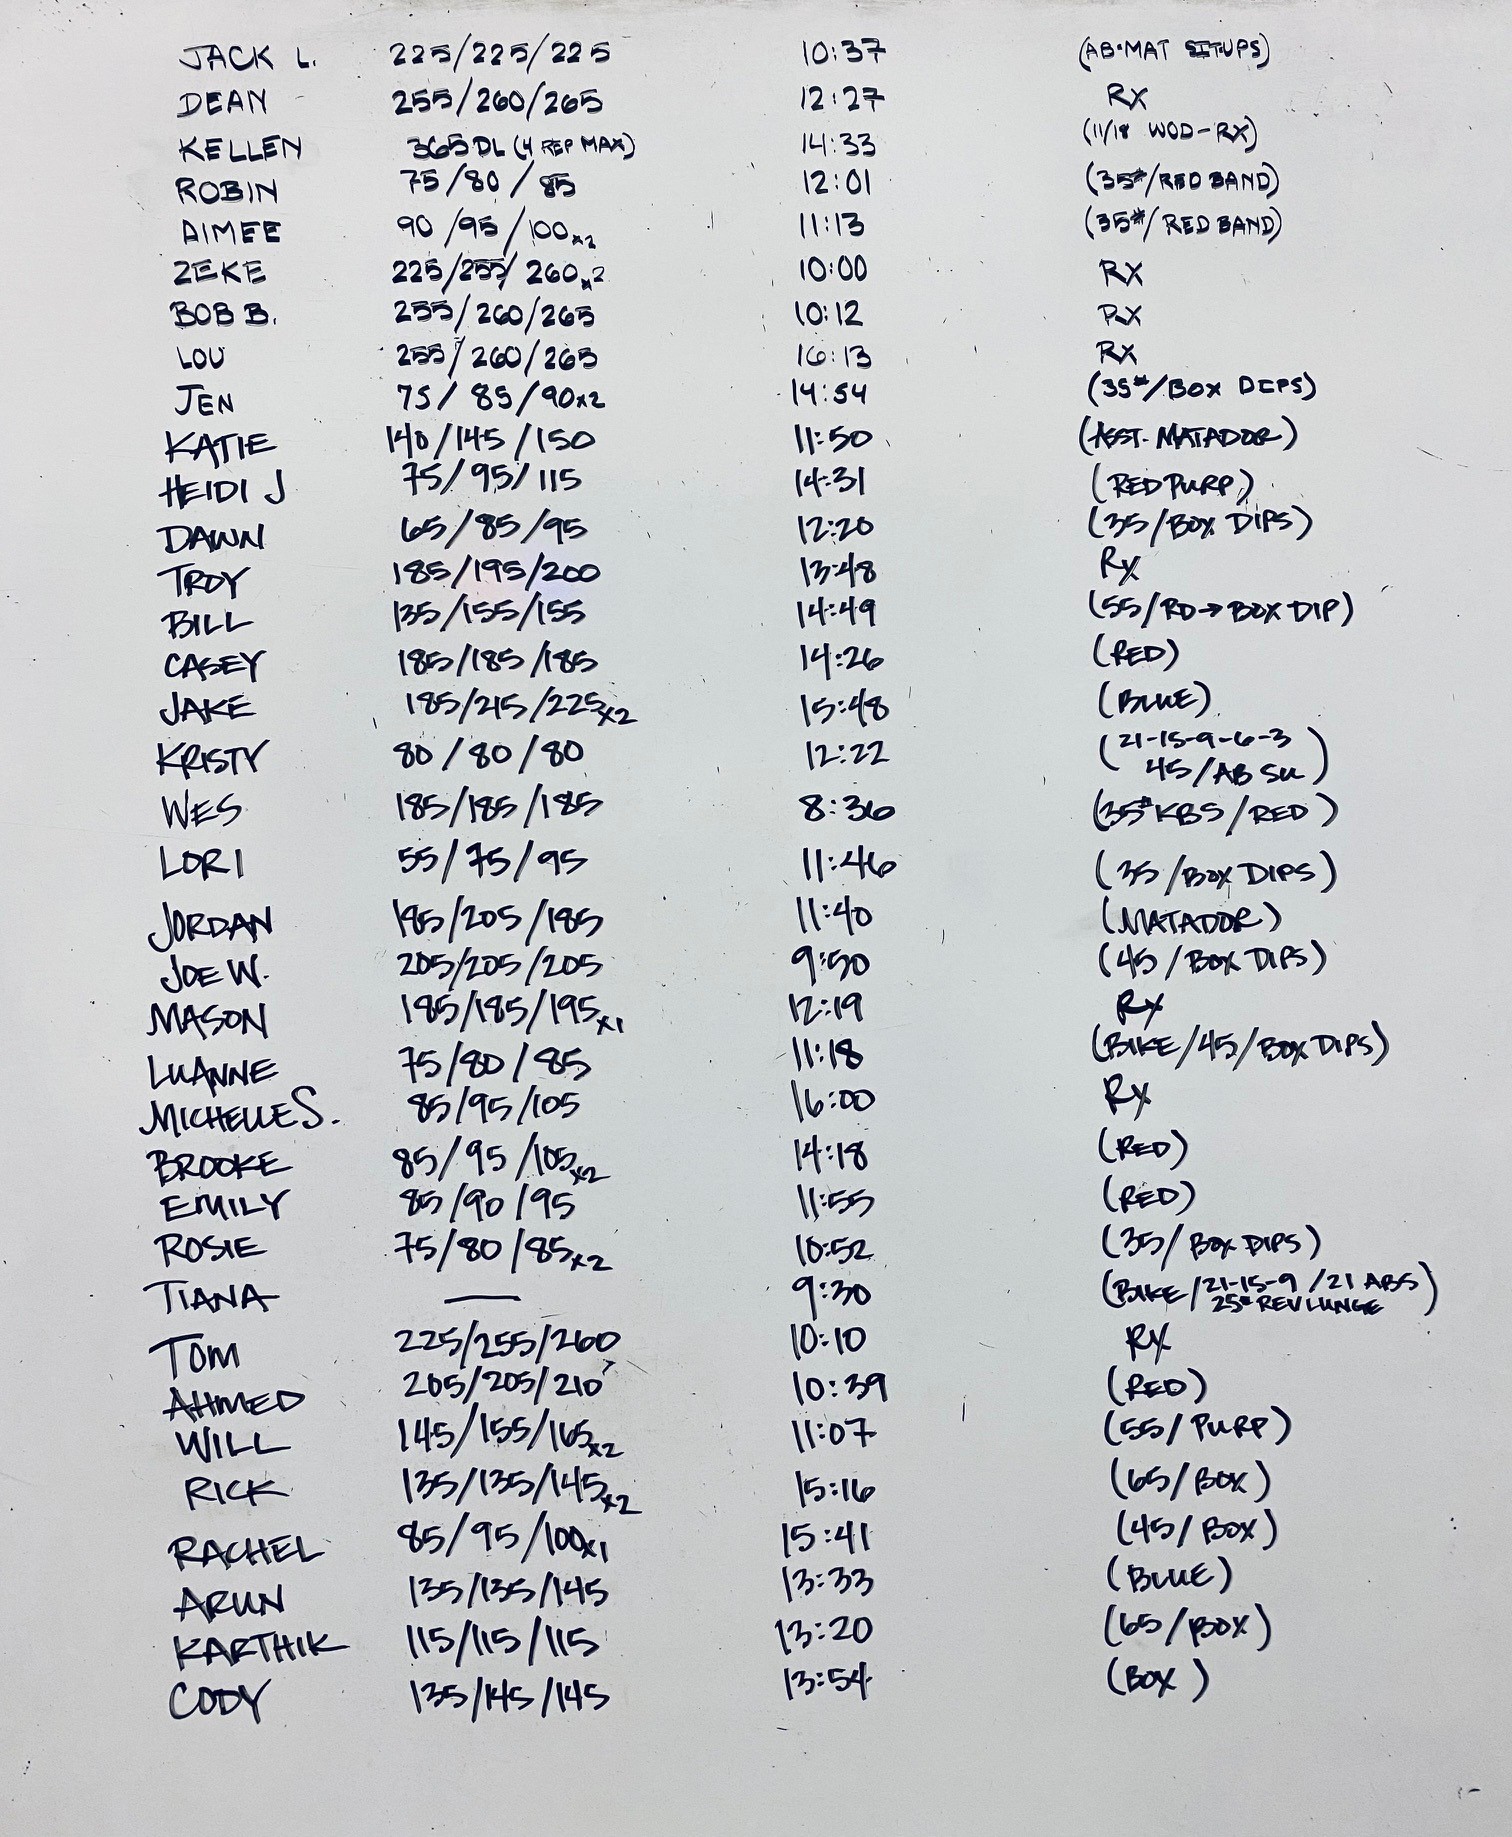 JACK L. 225/225/225 10:37 (AB·MAT SITUPS)
DEAN 255/260/265 12:27 RX
KELLEN 365 DL (4 REP MAX) 14:33 (11/18 WOD-RX)
ROBIN 75/80/85 12:01 (35#/RED BAND)
AIMEE 90/95/100x2 11:13 (35#/RED BAND)
ZEKE 225/255/260x2 10:00 RX
BOB B. 255/260/265 10:12 RX
LOU 255/260/265 16:13 RX
JEN 75/85/90x2 14:54 (35#/BOX DIPS)
KATIE 140/145/150 11:50 (ASST. MATADOR)
HEIDI J 75/95/115 14:31 (RED PURP)
DAWN 65/85/95 12:20 (35/BOX DIPS)
TROY 185/195/200 13:48 Rx
BILL 135/155/155 14:49 (55/RD→BOX DIP)
CASEY 185/185/185 14:26 (RED)
JAKE 185/215/225x2 15:48 (BLUE)
KRISTY 80/80/80 12:22 (21-15-9-6-3
45/AB SU)
WES 185/185/185 8:36 (35# KBS/RED)
LORI 55/75/95 11:46 (35/BOX DIPS)
JORDAN 185/205/185 11:40 (MATADOR)
JOE W. 205/205/205 9:50 (45/BOX DIPS)
MASON 185/185/195x1 12:19 Rx
LUANNE 75/80/85 11:18 (BIKE/45/BOX DIPS)
MICHELLE S. 85/95/105 16:00 Rx
BROOKE 85/95/105x2 14:18 (RED)
EMILY 85/90/95 11:55 (RED)
ROSIE 75/80/85x2 10:52 (35/BOX DIPS)
TIANA — 9:30 (BIKE/21-15-9/21 ABS
25# REV LUNGE)
TOM 225/255/260 10:10 RX
AHMED 205/205/210 10:39 (RED)
WILL 145/155/165x2 11:07 (55/PURP)
RICK 135/135/145x2 15:16 (65/BOX)
RACHEL 85/95/100x1 15:41 (45/BOX)
ARUN 135/135/145 13:33 (BLUE)
KARTHIK 115/115/115 13:20 (65/BOX)
CODY 135/145/145 13:54 (BOX)